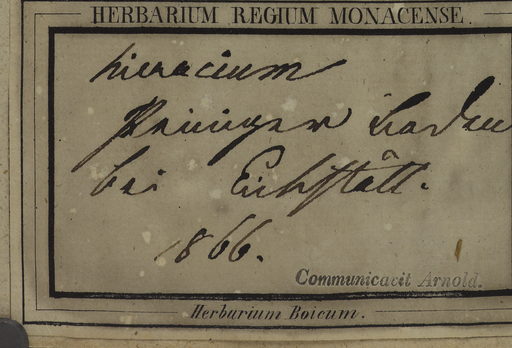 HERBARIUM REGIUM MONACENSE.
Hieracium
bei Eichstätt.
1866.
Communicavit Arnold.
Herbarium Boicum.